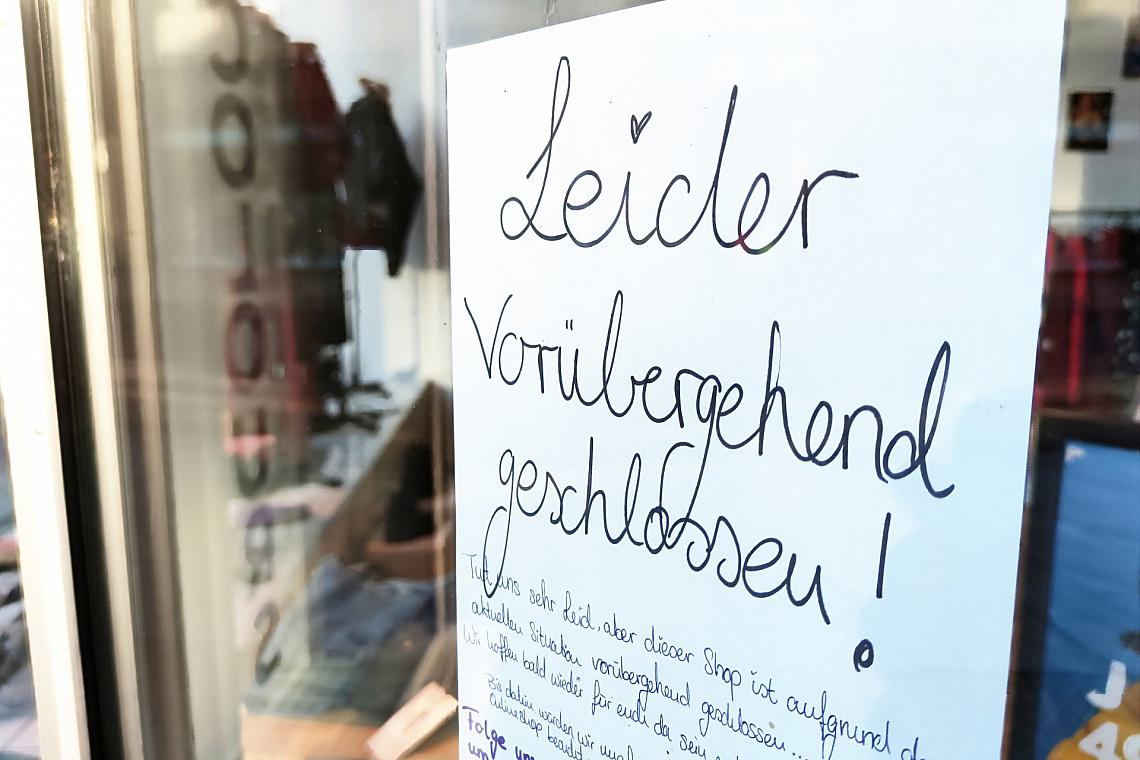 Leider
Vorübergehend
geschlossen!
Tut uns sehr Leid, aber dieser Shop ist aufgrund
aktuellen Situation vorübergehend geschlossen...
Wir hoffen bald wieder für euch da sein
Bis dahin würden wir uns
Onlineshop
Folge uns
und